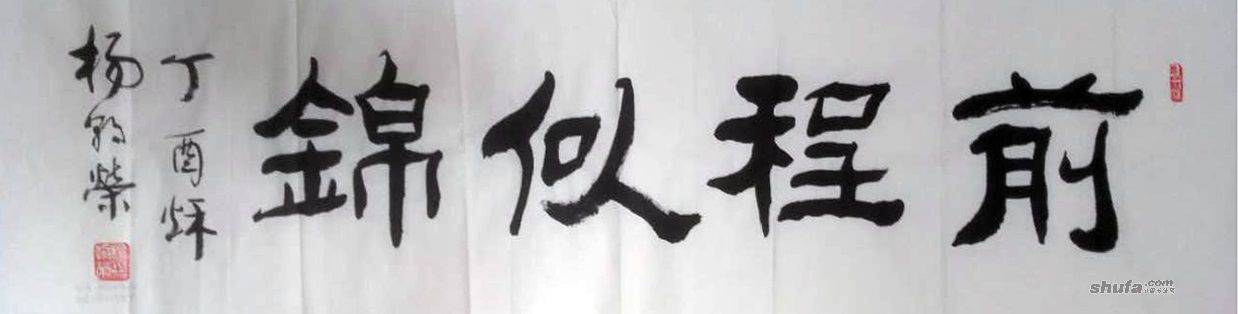 前程似錦
丁酉秌
杨
榮
shufa.com